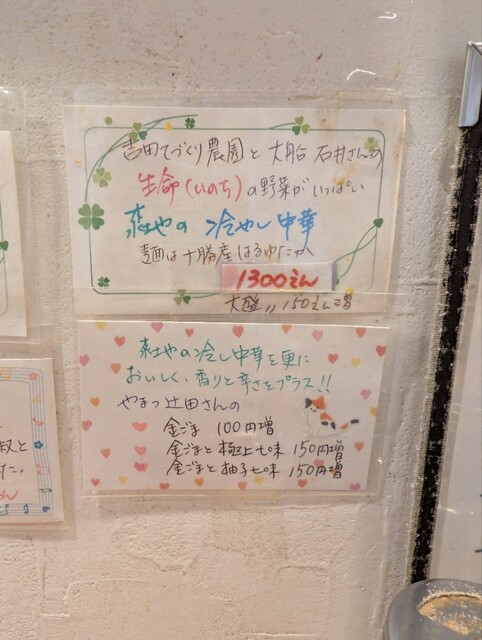 吉田てづくり農園と 大船 石井さんの
生命(いのち)の野菜がいっぱい
冷やし中華
麺は十勝産はるゆたか
1300えん
大盛〃150えん増
冷し中華を更に
おいしく、香りと辛さをプラス!!
やまつ辻田さんの
金ごま 100円増
金ごまと極上七味 150円増
金ごまと柚子七味 150円増